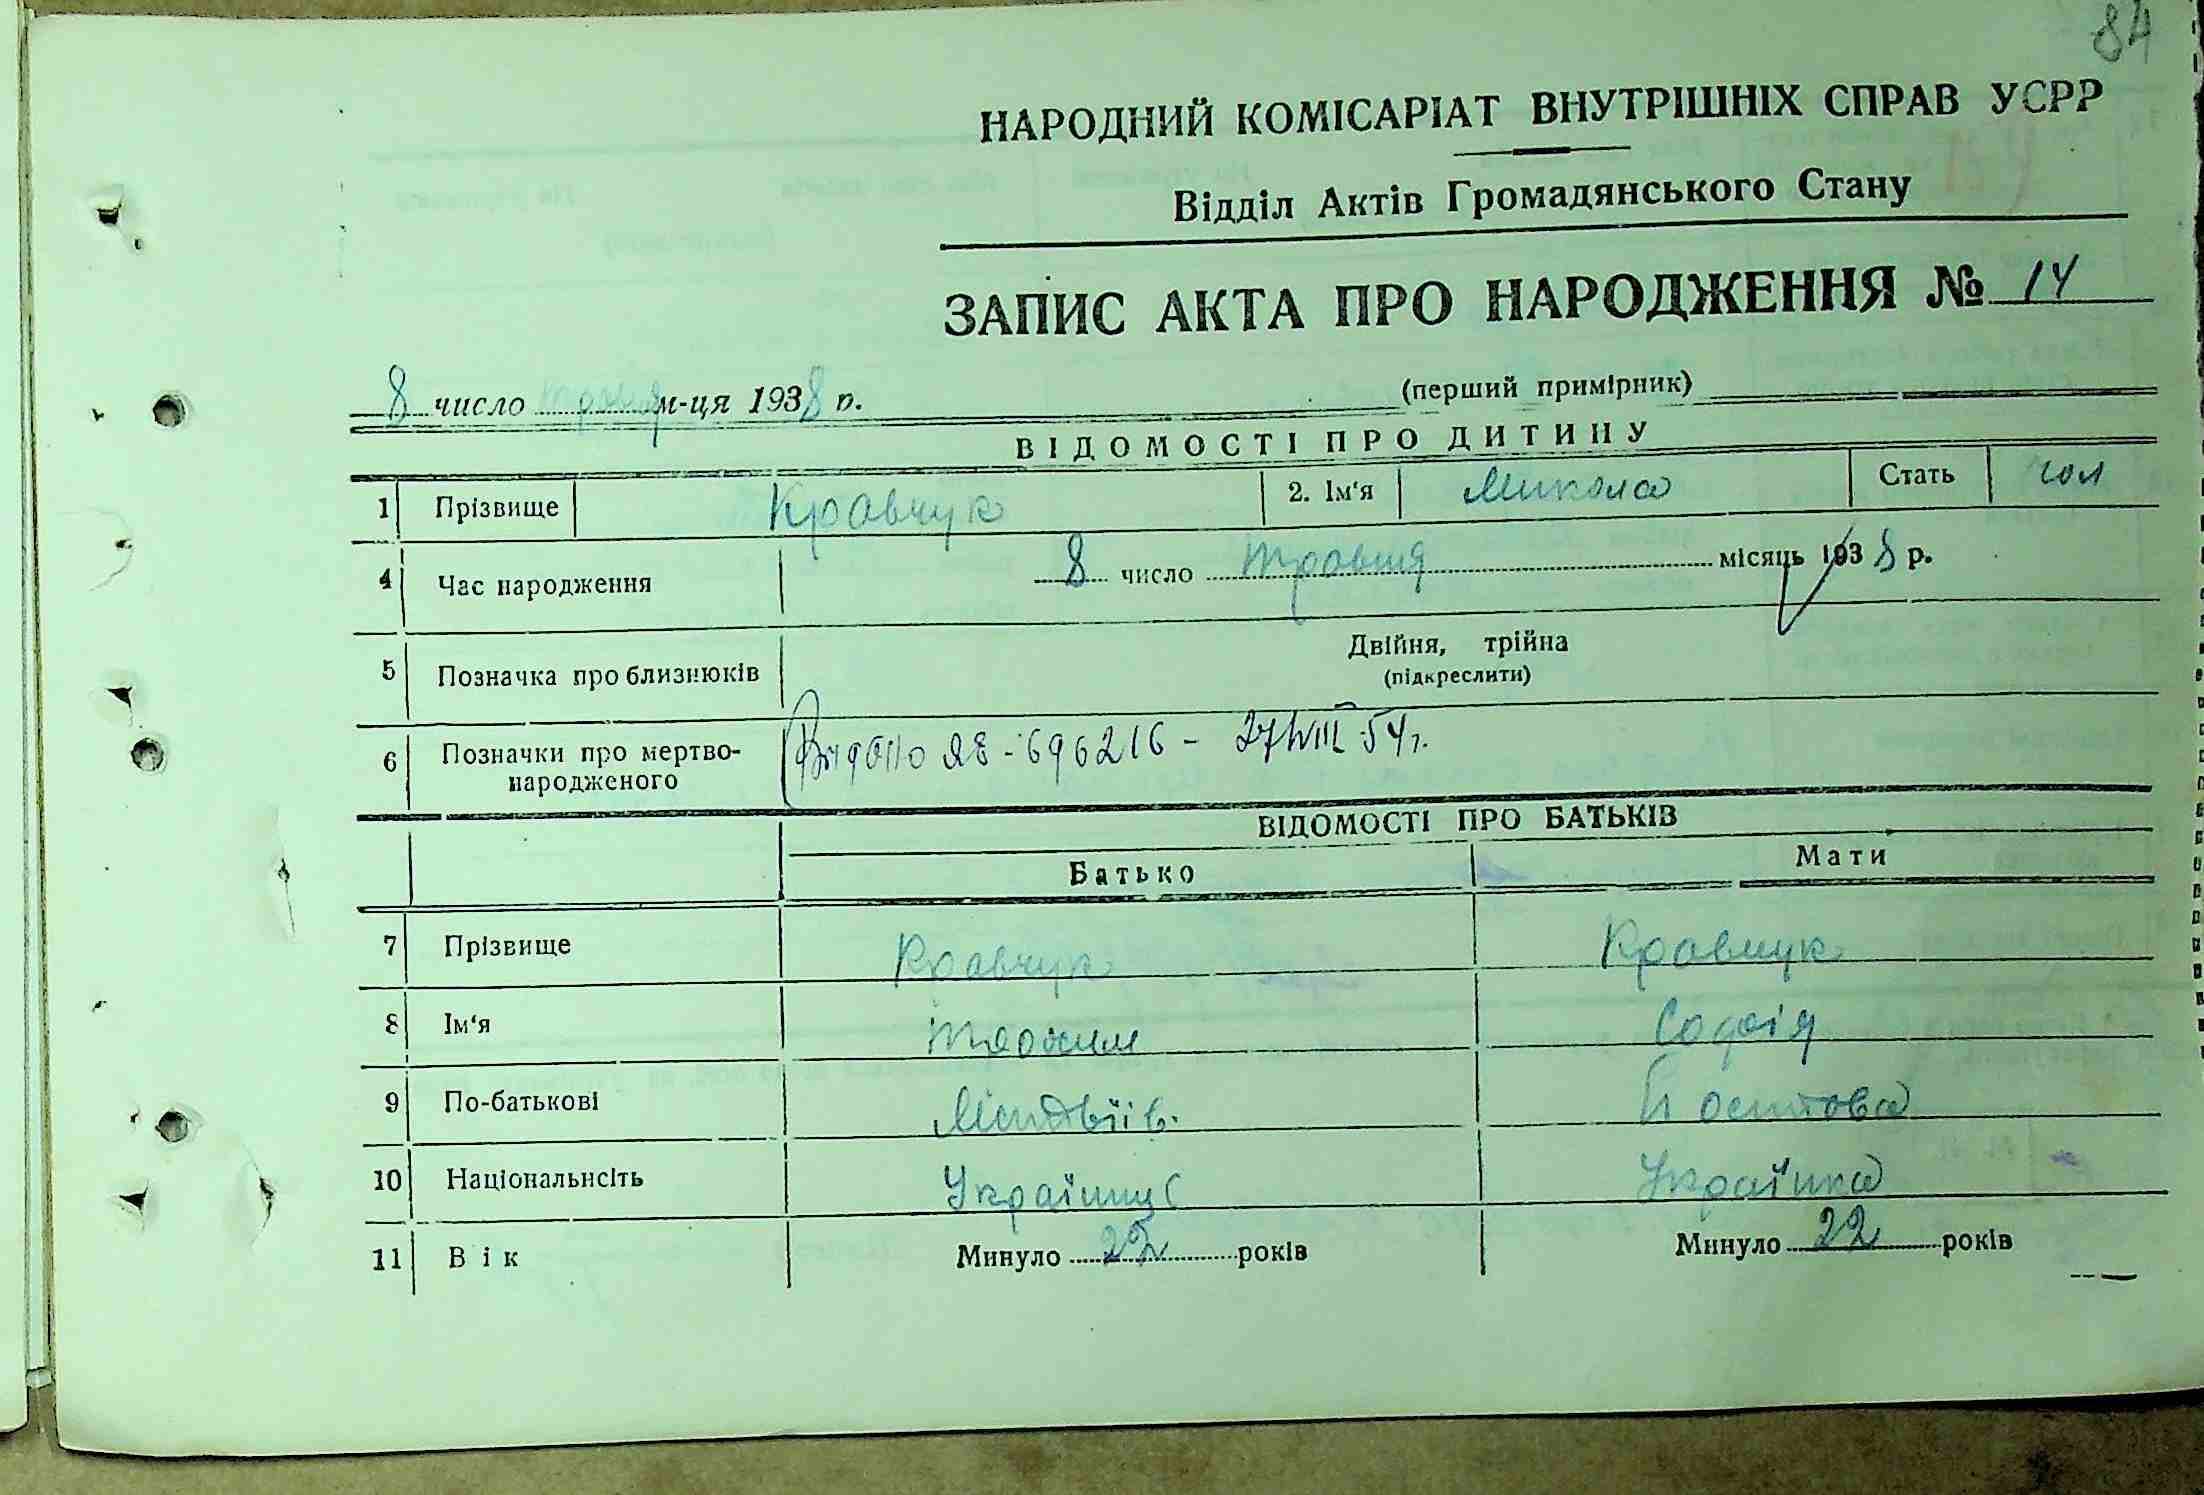 84
НАРОДНИЙ КОМІСАРІАТ ВНУТРІШНІХ СПРАВ УСРР
Відділ Актів Громадянського Стану
ЗАПИС АКТА ПРО НАРОДЖЕННЯ № 14
8 число травня м-ця 1938 р. (перший примірник)
ВІДОМОСТІ ПРО ДИТИНУ
1 Прізвище Кравчук 2. Ім'я Микола Стать чол
4 Час народження 8 число травня місяць 1938 р.
5 Позначка про близнюків Двійня, трійна
(підкреслити)
6 Позначки про мертво-
народженого
696216 - 27/VIII-54 г.
ВІДОМОСТІ ПРО БАТЬКІВ
Батько Мати
7 Прізвище Кравчук Кравчук
8 Ім'я Софія
9 По-батькові
10 Національнсіть Українец Українка
11 Вік Минуло років Минуло 22 років